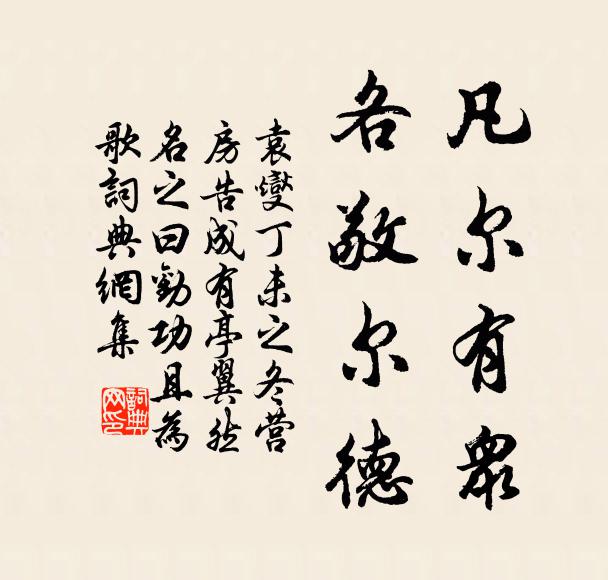 凡尔有眾
各敬尔德
袁燮丁未之冬营
房告成有亭翼然
名之曰勸功且為
歌詞典網集
詞典网印